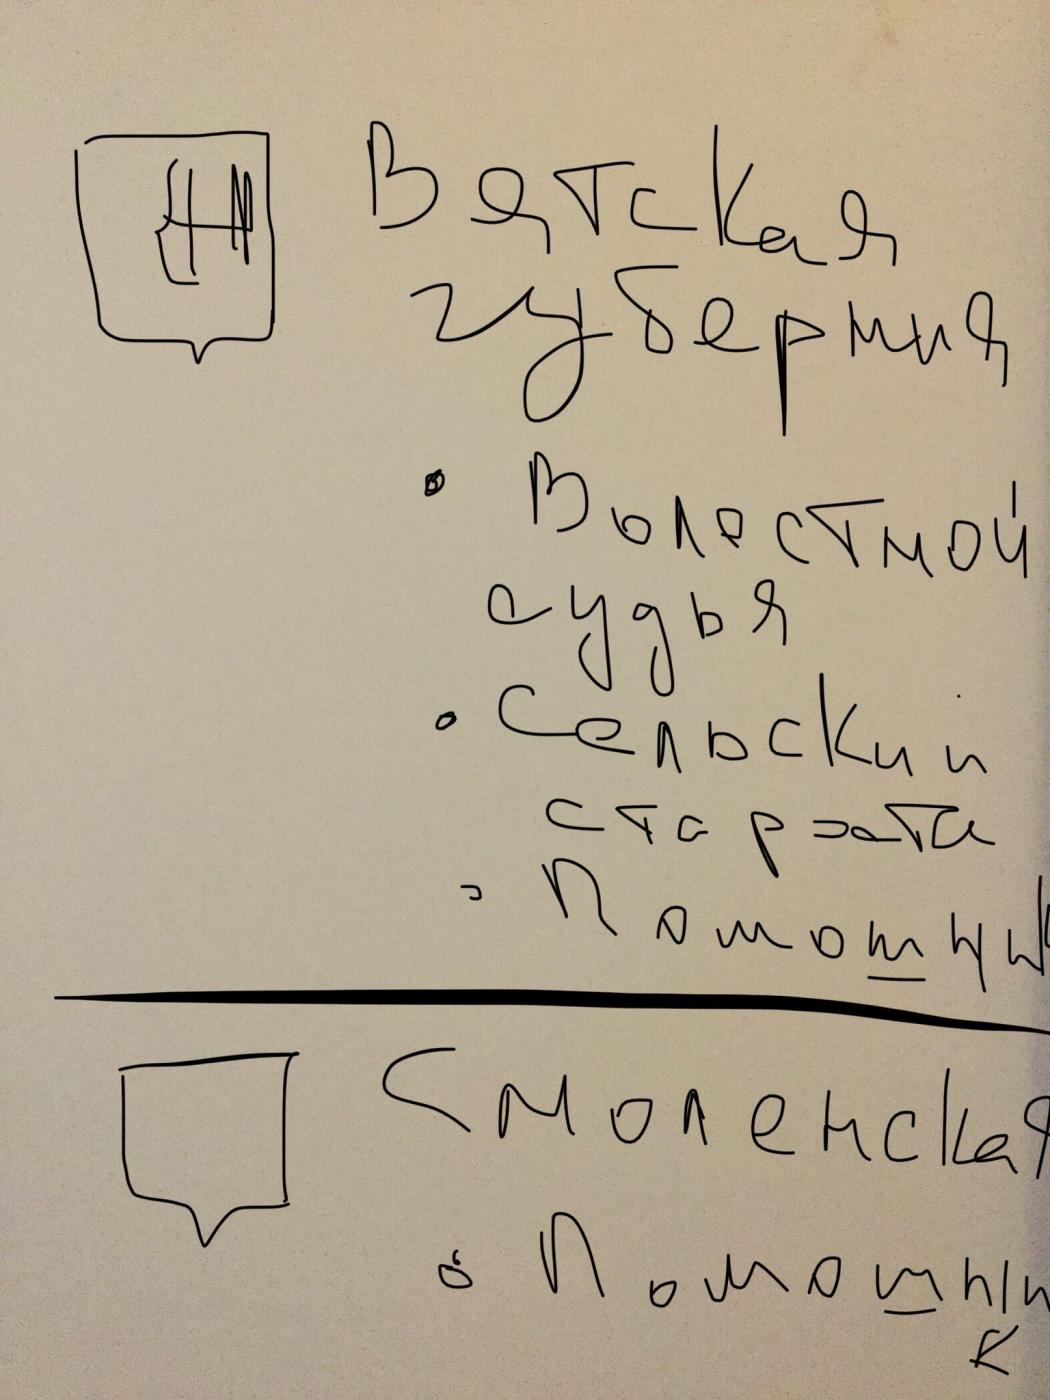 Вятская
губерния
• Волостной
судья
• Сельский
староста
• Помощник
Смоленская
• Помощник